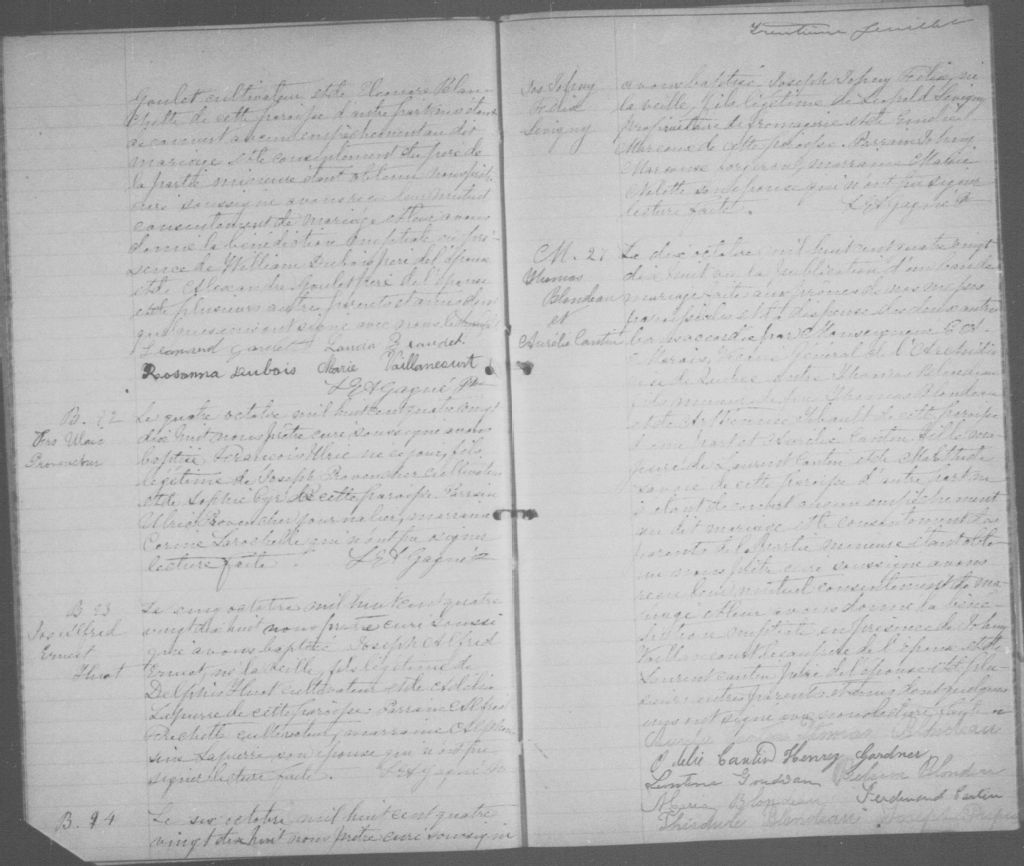 Goulet cultivateur et de Eleonore Blan-
chette de cette paroisse d'autre part ne s'étant
découvert aucun empêchement au dit
mariage et le consentement du père de
la partie mineure étant obtenu nous prêt.
curé soussigné avons reçu leur mutuel
consentement de mariage et leur avons
donné la bénédiction nuptiale en pré-
sence de William Dubois père de l'époux
et de Alexandre Goulet père de l'épouse
et de plusieurs autres parents et amis dont
qui nous ont signé avec nous
Rosanna Dubois Marie Vaillancourt
L.E.A. Gagné Ptre
B. 92
Frs Ulric
Provencher
Le quatre octobre mil huit cent quatre vingt
dix huit nous prêtre curé soussigné avons
baptisé François Ulric né ce jour, fils
légitime de Joseph Provencher cultivateur
et de Sophie Cyr de cette paroisse. Parrain
Ulric Provencher journalier, marraine
Corinne Larochelle qui n'ont pu signer
lecture faite. L.E.A. Gagné Ptre
B 93
Jos. Alfred
Ernest
Huot
Le cinq octobre mil huit cent quatre
vingt dix huit nous prêtre curé soussi
gné avons baptisé Joseph Alfred
Ernest, né la veille, fils légitime de
Delphis Huot cultivateur et de
Lapierre de cette paroisse. Parrain Alfred
cultivateur, marraine
Lapierre son épouse qui n'ont pu
signer lecture faite. L.E.A. Gagné Ptre
B. 94
Le six octobre mil huit cent quatre
vingt dix huit nous prêtre curé soussigné
Trentième feuillet
Jos Johny
Felix
Sevigny
avons baptisé Joseph Johny Felix, né
la veille, fils légitime de Leopold Sevigny
propriétaire de fromagerie et de
Marcoux de cette paroisse. Parrain Johny
Marcoux forgeron, marraine
son épouse qui n'ont pu signer
lecture faite. L.E.A. Gagné Ptre
M. 27
Thomas
Blondeau
et
Aurélie Cantin
Le dix octobre mil huit cent quatre vingt
dix huit vu la publication d'un ban de
mariage faite aux prônes de nos messes
paroissiales et la dispense des deux autres
bans accordée par Monseigneur
Marois, Vicaire Général de l'Archidio
cèse de Québec entre Thomas Blondeau
fils mineur de feu Thomas Blondeau
et de de cette paroisse
d'une part et Aurélie Cantin fille ma
jeure de Laurent Cantin et de Mathilde
de cette paroisse d'autre part ne
s'étant découvert aucun empêchement
au dit mariage et le consentement des
parents de la partie mineure étant obte
nu nous prêtre curé soussigné avons
reçu leur mutuel consentement de ma
riage et leur avons donné la béné
diction nuptiale en présence de Johny
Vaillancourt de l'époux et de
Laurent Cantin père de l'épouse et de plu
sieurs autres parents et amis dont quelques
uns ont signé avec nous lecture faite
Aurélie Cantin Thomas Blondeau
Odelie Cantin Henry Gardner
Blondeau
Maria Blondeau Ferdinand Cantin
Blondeau Joseph